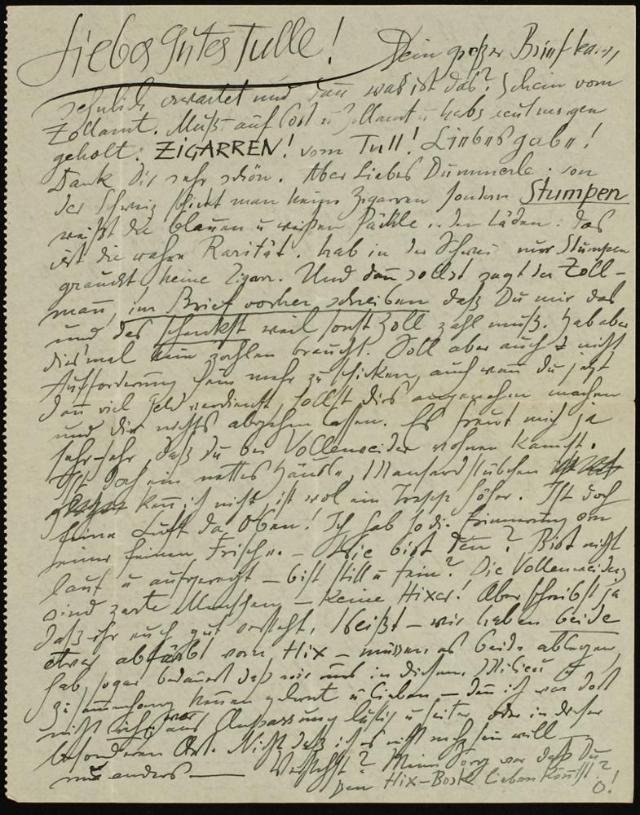 Liebes Gutes Tulle! Dein großer Brief kam,
sehnlich erwartet und dann was ist das? Schein vom
Zollamt. Muß auf Post u. Zollamt u habs heut morgen
geholt: ZIGARREN! vom Tull! Liebesgabe!
Dank Dir sehr schön. Aber Liebes Dummerle: von
der Schweiz schickt man keine Zigarren sondern Stumpen
weißt die blauen u weißen Päckle in den Läden. Das
ist die wahre Rarität. hab in der Schweiz nur Stumpen
geraucht, keine Zigarr. Und dann sollst sagt der Zoll-
mann, im Brief vorher schreiben daß Du mir das
und das schenkst weil sonst Zoll zahl muß. hab aber
diesmal kein zahlen braucht. Soll aber auch nicht
Aufforderung sein mehr zu schicken, auch wenn du jetzt
dann viel Geld verdienst, sollst dirs angenehm machen
und dir nichts abgehen lassen. Es freut mich ja
sehr-sehr, daß du bei Vollenweider wohnen kannst.
Ist doch ein nettes Häusle, Mansardstübchen
kenn ich nicht, ist wol ein Treppe höher. Ist doch
feine Luft da oben. Ich hab so die Erinnerung an
seine feinen Frische. – Wie bist Du? Bist nicht
laut u aufgeregt – bist still u fein? Die Vollenweiders
sind zarte Menschen – keine Hixer! Aber schreibst ja
daß ihr euch gut versteht. Weißt – wir haben beide
etwas abfärbt vom Hix – müssen es beide ablegen,
hab sogar bedauert daß wir uns in diesem Milieu u
Zusammenhang kennen gelernt u Lieben – denn ist war dort
nicht Anpassung lustig u heiter, oder in dieser
besonderen Art. Nicht daß ich es nicht mehr sein will –
nur anders — Verstehst? Meine Sorg war daß Du
den Hix-Bostle lieben könntst?
O!